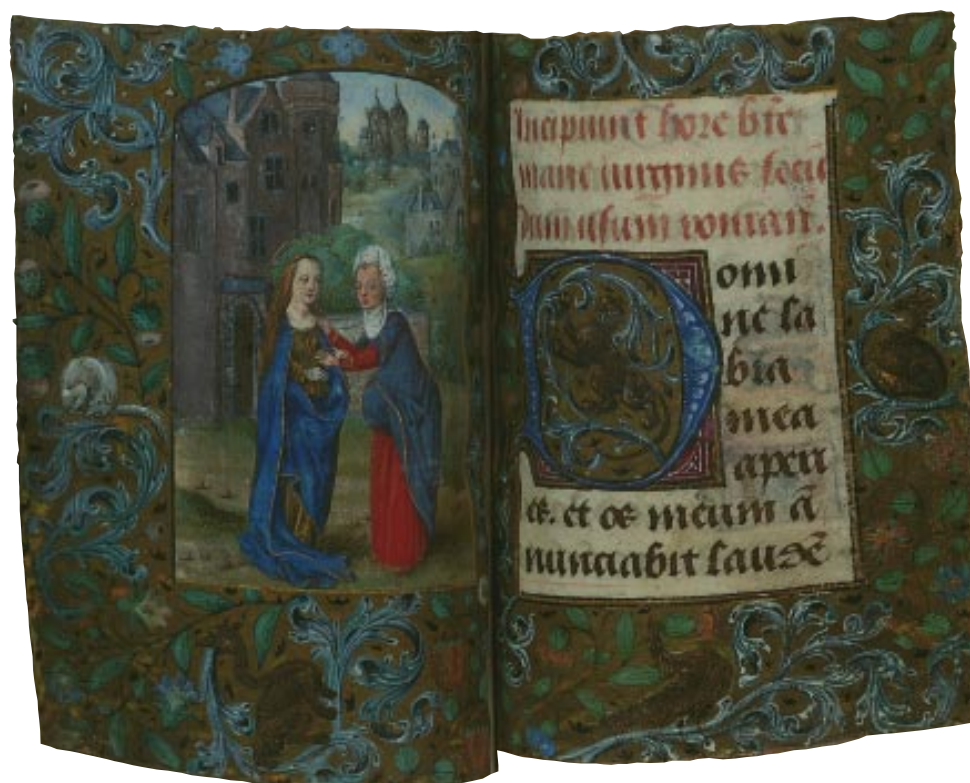 Incipiunt hore bte
marie uirginis secū
dum usum romanū.
Domi
ne la
bia
mea
aperi
es. et os meum ā
nunciabit laudē